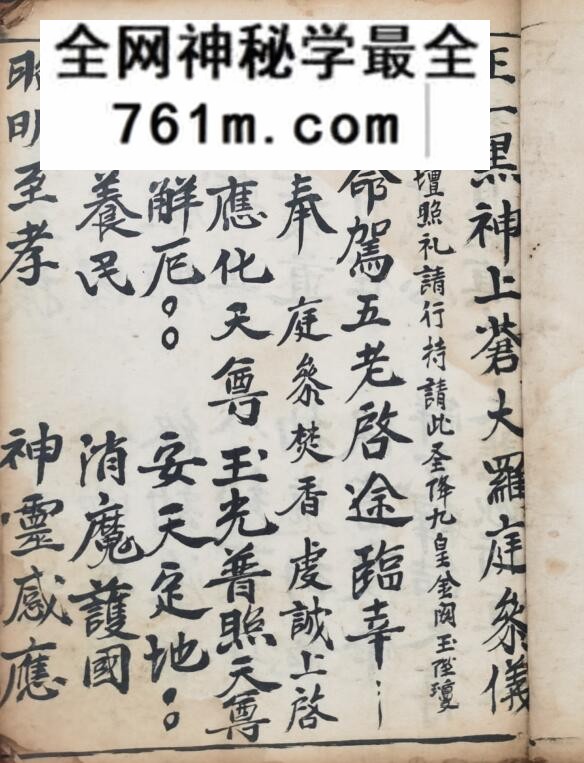 全网神秘学最全
761m.com
正一黑神上蒼大羅庭參儀
壇照礼請行持請此圣降九皇金阙玉陛瓊
命駕五老啓途臨幸
奉 庭參焚香虔誠上啓
應化天尊玉光普照天尊
解厄 安天定地
養民 消魔護國
明至孝 神靈感應